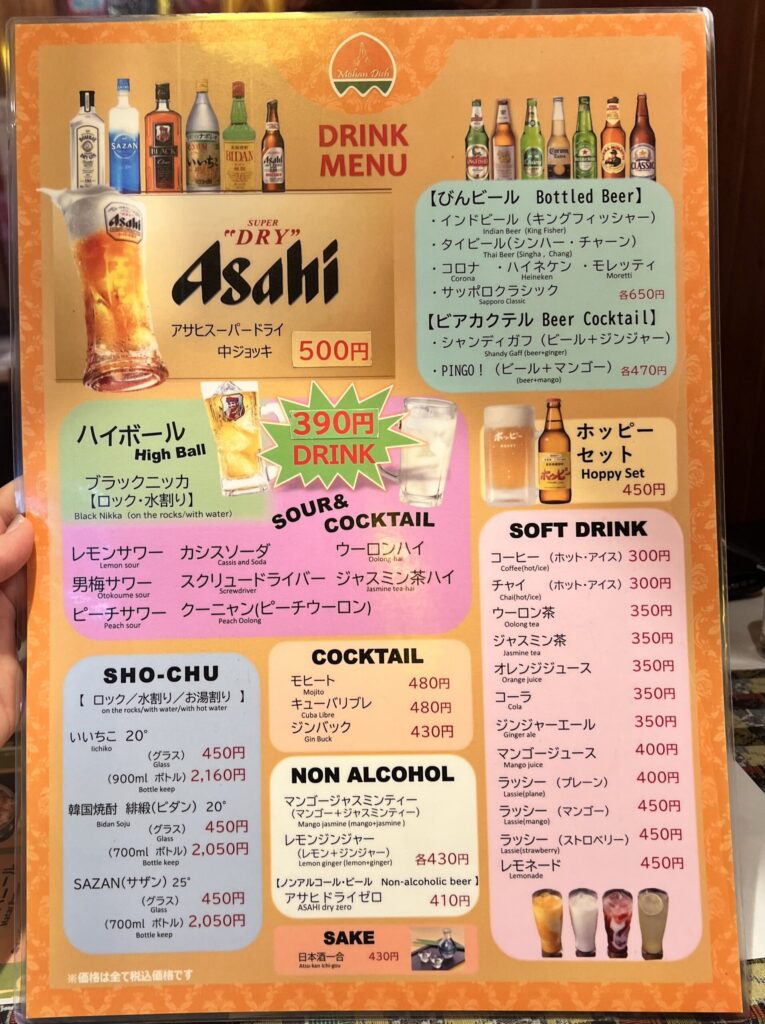 Mohan Dish
DRINK
MENU
SUPER
"DRY"
Asahi
アサヒスーパードライ
中ジョッキ 500円
【びんビール Bottled Beer】
・インドビール（キングフィッシャー）
Indian Beer (King Fisher)
・タイビール（シンハー・チャーン）
Thai Beer (Singha , Chang)
・コロナ ・ハイネケン ・モレッティ
Corona Heineken Moretti
・サッポロクラシック 各650円
Sapporo Classic
【ビアカクテル Beer Cocktail】
・シャンディガフ（ビール＋ジンジャー）
Shandy Gaff (beer+ginger)
・PINGO！（ビール＋マンゴー） 各470円
(beer+mango)
390円
DRINK
ハイボール
High Ball
ブラックニッカ
【ロック・水割り】
Black Nikka (on the rocks/with water)
SOUR&
COCKTAIL
レモンサワー カシスソーダ ウーロンハイ
Lemon sour Cassis and Soda Oolong-hai
男梅サワー スクリュードライバー ジャスミン茶ハイ
Otokoume sour Screwdriver Jasmine tea-hai
ピーチサワー クーニャン(ピーチウーロン)
Peach sour Peach Oolong
ホッピー
セット
Hoppy Set
450円
SOFT DRINK
コーヒー （ホット・アイス） 300円
Coffee(hot/ice)
チャイ （ホット・アイス） 300円
Chai(hot/ice)
ウーロン茶 350円
Oolong tea
ジャスミン茶 350円
Jasmine tea
オレンジジュース 350円
Orange juice
コーラ 350円
Cola
ジンジャーエール 350円
Ginger ale
マンゴージュース 400円
Mango juice
ラッシー （プレーン） 400円
Lassie(plane)
ラッシー （マンゴー） 450円
Lassie(mango)
ラッシー （ストロベリー） 450円
Lassie(strawberry)
レモネード 450円
Lemonade
SHO-CHU
【 ロック／水割り／お湯割り 】
on the rocks/with water/with hot water
いいちこ 20°
Iichiko
（グラス） 450円
Glass
（900ml ボトル） 2,160円
Bottle keep
韓国焼酎 緋緞（ビダン） 20°
Bidan Soju
（グラス） 450円
Glass
（700ml ボトル） 2,050円
Bottle keep
SAZAN（サザン） 25°
（グラス） 450円
Glass
（700ml ボトル） 2,050円
Bottle keep
COCKTAIL
モヒート 480円
Mojito
キューバリブレ 480円
Cuba Libre
ジンバック 430円
Gin Buck
NON ALCOHOL
マンゴージャスミンティー
（マンゴー＋ジャスミンティー）
Mango jasmine (mango+jasmine )
レモンジンジャー
（レモン＋ジンジャー） 各430円
Lemon ginger (lemon+ginger)
【ノンアルコール・ビール Non-alcoholic beer 】
アサヒドライゼロ 410円
ASAHI dry zero
SAKE
日本酒一合 430円
Atsu-kan Ichi-gou
※価格は全て税込価格です